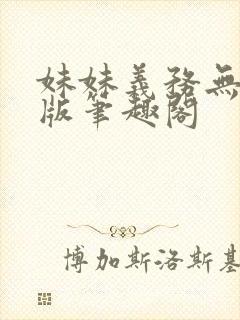 妹妹義務無
版筆趣閣
博加斯洛斯基